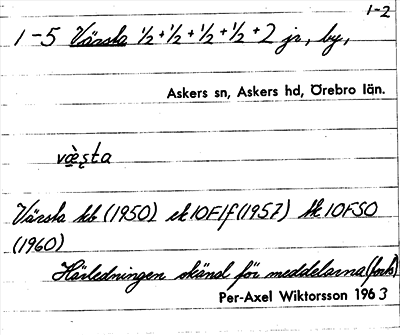 1-2
1-5 Värsta 1/2 + 1/2 + 1/2 + 1/2 + 2 jr, by,
Askers sn, Askers hd, Örebro län.
væ̀ṣta
Värsta kb (1950) ek 10F1f (1957) tk 10FSO
(1960)
Härledningen okänd för meddelarna
Per-Axel Wiktorsson 1963